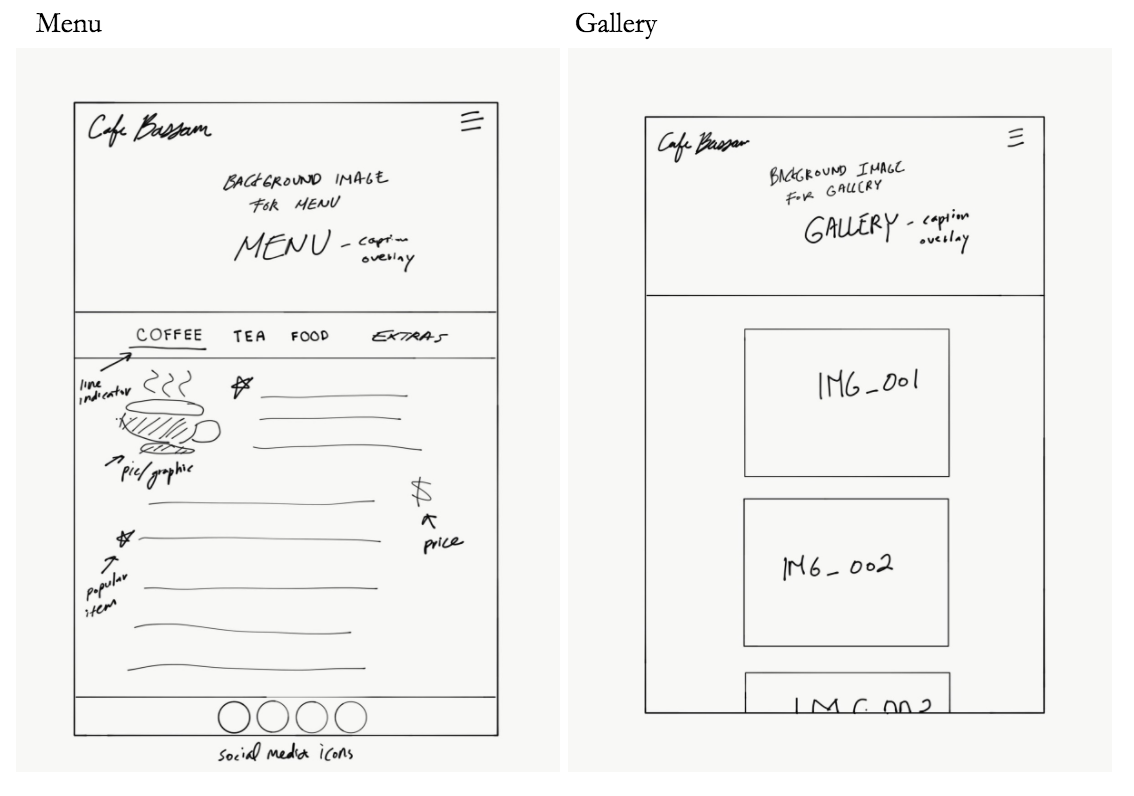 Menu
Cafe Bassam
BACKGROUND IMAGE
FOR MENU
MENU - caption
overlay
COFFEE TEA FOOD EXTRAS
line
indicator
pic/graphic
$
price
popular
item
social media icons
Gallery
Cafe Bassam
BACKGROUND IMAGE
FOR GALLERY
GALLERY - caption
overlay
IMG_001
IMG_002
IMG_003